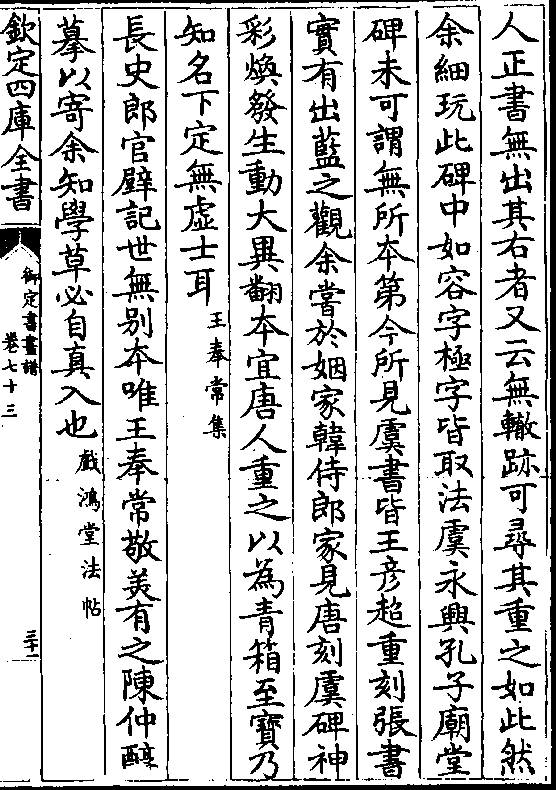 人正書無出其右者又云無轍跡可尋其重之如此然
余細玩此碑中如容字極字皆取法虞永興孔子廟堂
碑未可謂無所本第今所見虞書皆王彦超重刻張書
實有出藍之觀余嘗於姻家韓侍郎家見唐刻虞碑神
彩煥發生動大異翻本宜唐人重之以為青箱至寶乃
知名下定無虛士耳王奉常集
長史郎官壁記世無别本唯王奉常敬美有之陳仲醇
摹以寄余知學草必自真入也戲鴻堂法帖
欽定四庫全書
御定書畫譜
卷七十三
三十一